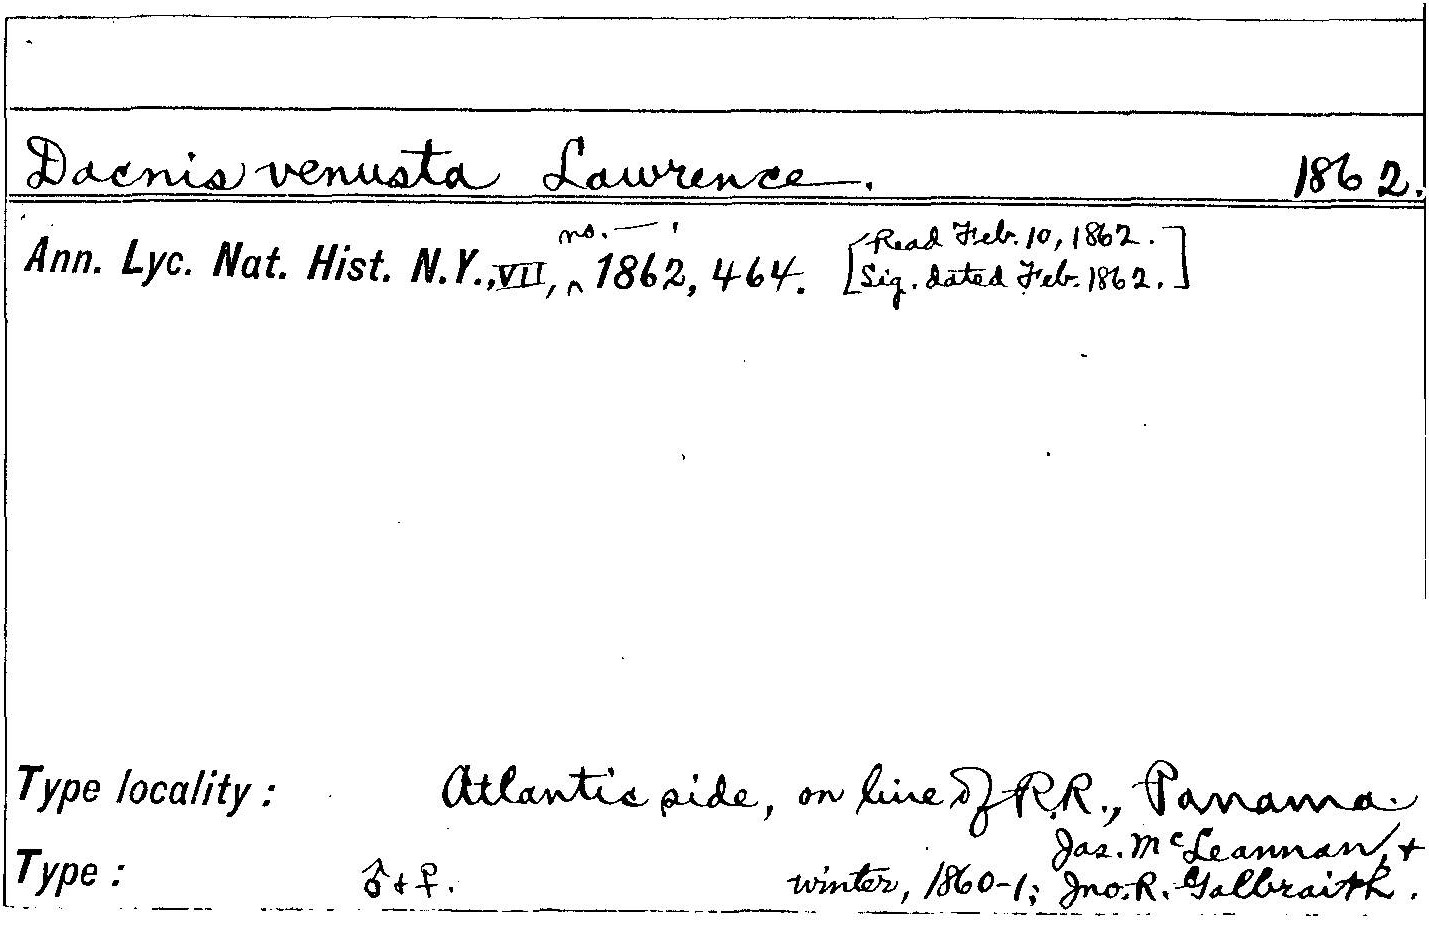 Dacnis venusta Lawrence. 1862.
Ann. Lyc. Nat. Hist. N.Y., VII, no. — , 1862, 464. [Read Feb. 10, 1862.
Sig. dated Feb. 1862.]
Type locality: Atlantic side, on line of R.R., Panama.
Jas. McLeannan, +
Type: ♂ + ♀. winter, 1860-1; Jno. R. Galbraith.